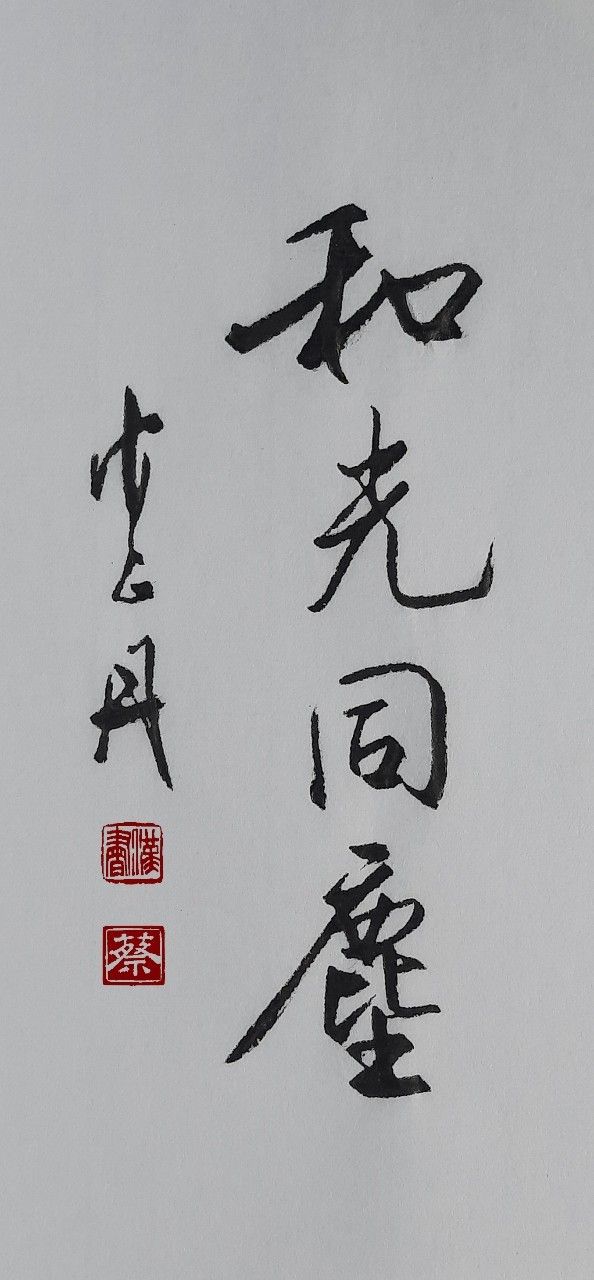 和光同塵
漢書
蔡